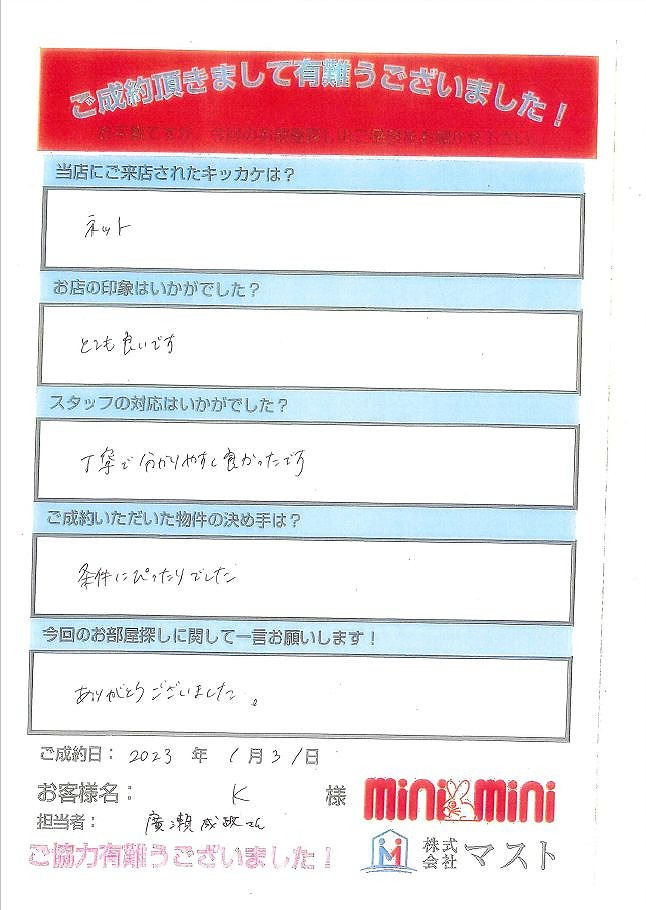 ご成約頂きまして有難うございました！
当店にご来店されたキッカケは？
ネット
お店の印象はいかがでした？
とても良いです
スタッフの対応はいかがでした？
丁寧で分かりやすく良かったです
ご成約いただいた物件の決め手は？
条件にぴったりでした
今回のお部屋探しに関して一言お願いします！
ありがとうございました。
ご成約日： 2023 年 1月31日
お客様名： K 様
担当者： 廣瀬成政さん
ご協力有難うございました！
mini mini
株式会社マスト